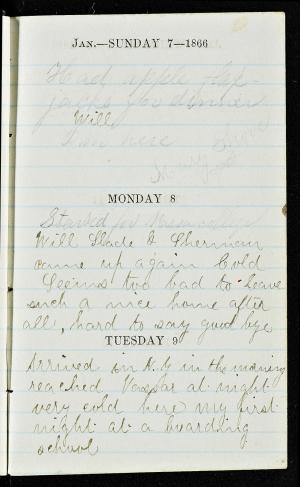 Jan.—SUNDAY 7—1866
Had apple flap-
jacks for dinner
Will
here
MONDAY 8
Started for
Will Slade & Sherman
came up again Cold
Seems too bad to leave
such a nice home after
all, hard to say good bye
TUESDAY 9
Arrived in N.Y in the morning
reached Vassar at night
very cold here my first
night at a boarding
school